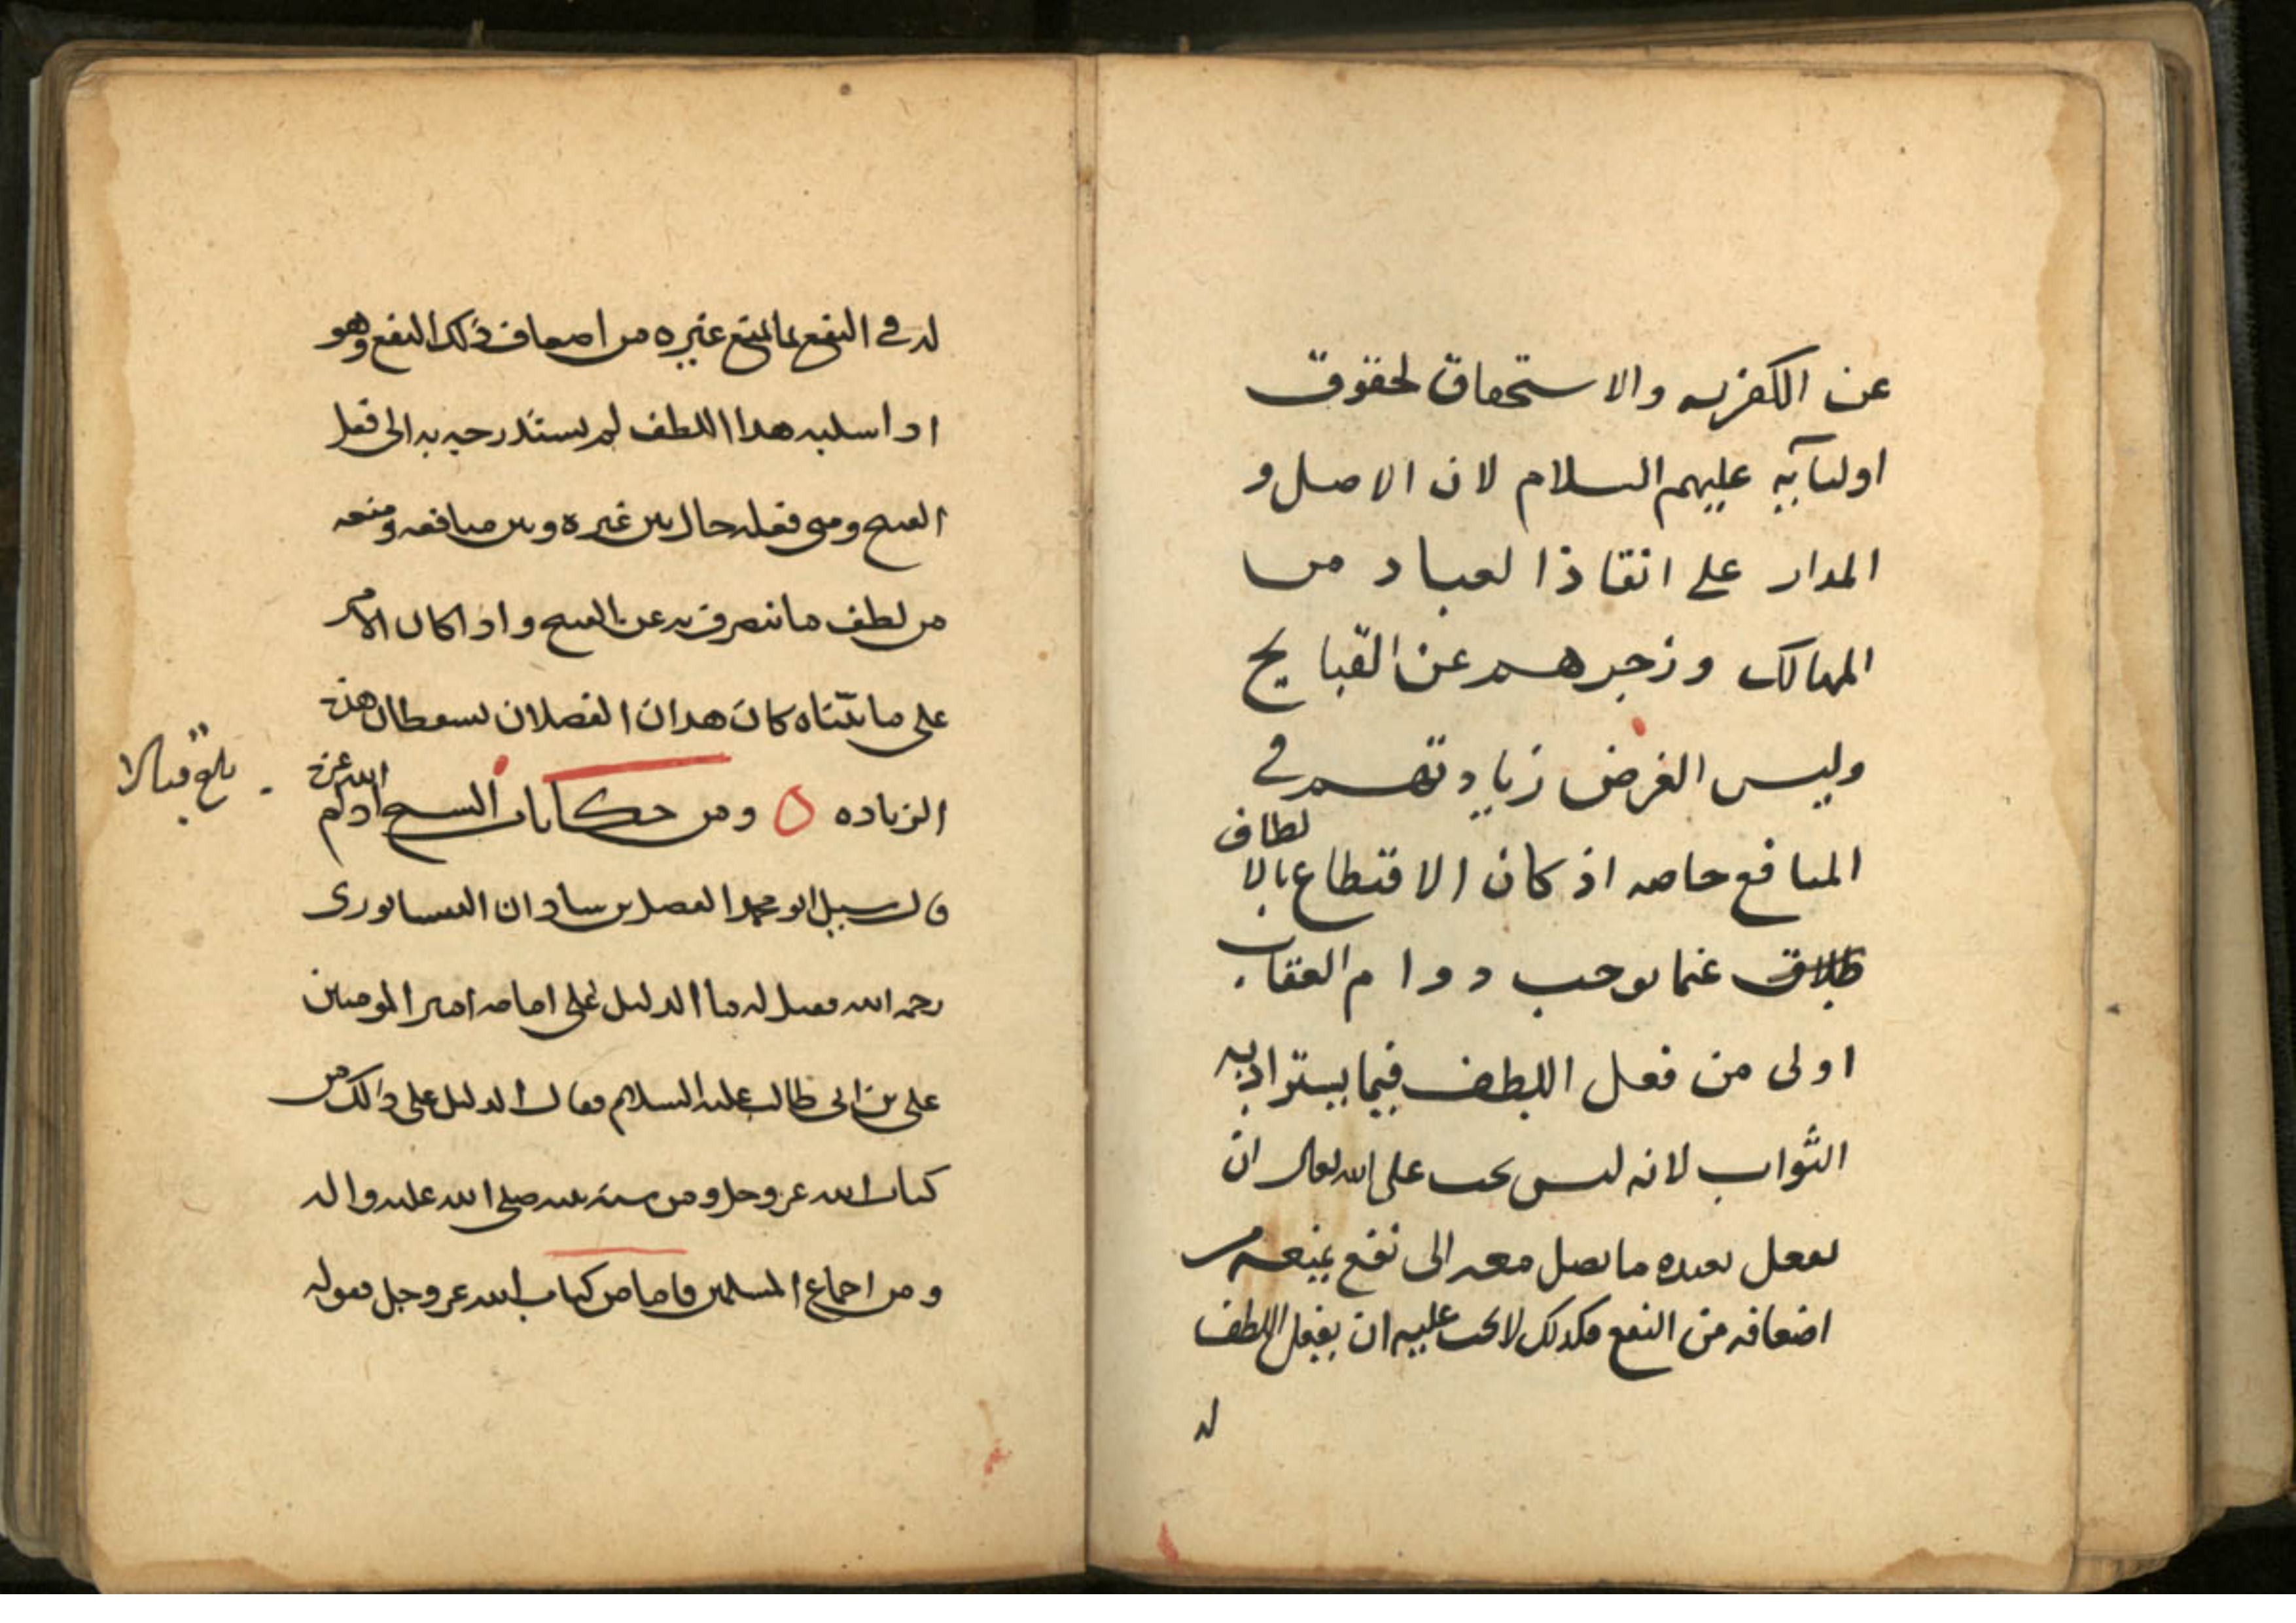 عن الكفر به والاستحقاق لحقوق
اوليآئه عليهم السلام لان الاصل و
المدار على انقاذ العباد من
المهالك وزجرهم عن القبايح
وليس الغرض زيادتهم في
المنافع خاصه اذ كان الاقتطاع بالالطاف
عما يوجب دوام العقاب
اولى من فعل اللطف فيما يستزاد به
الثواب لانه ليس يجب على الله تعالى ان
يفعل بعبده ما يصل معه الى نفع يمنعه من
اضعافه من النفع فكذلك لا يجب عليه ان يفعل اللطف
له
له في النفع بما يمنع غيره من اضعاف ذلك النفع وهو
اذا سلبه هذا اللطف لم يستدرجه به الى فعل
القبيح ومتى فعله حال بين غيره وبين منافعه ومنعه
من لطف ما ينصرف به عن القبيح واذا كان الامر
على ما بيّنّاه كان هذان الفصلان يسقطان هذه
الزياده ومن حكايات الشيخ ادام الله عزه
قال سيل ابو محمد الفضل بن شاذان النيسابوري
رحمه الله فقيل له ما الدليل على امامه امير المومنين
على بن ابى طالب عليه السلام فقال الدليل على ذالك من
كتاب الله عز وجل ومن سنه نبيه صلى الله عليه واله
ومن اجماع المسلمين فاما من كتاب الله عز وجل فقوله
بلغ قبالا